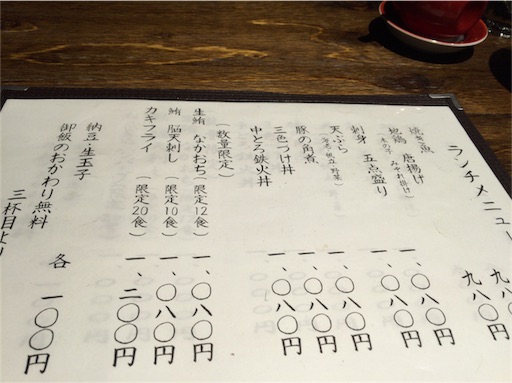 ランチメニュー
焼き魚 九八〇円
地鶏 唐揚げ 九八〇円
(木の子 みぞれ掛け)
刺身 五点盛り 一、〇八〇円
天ぷら 一、〇八〇円
豚の角煮 一、〇八〇円
三色つけ丼 一、〇八〇円
中とろ鉄火丼 一、〇八〇円
(数量限定)
生鮪 なかおち(限定12食) 一、〇八〇円
鮪 脳天刺し(限定10食) 一、〇八〇円
カキフライ(限定20食) 一、二〇〇円
納豆・生玉子 各 一〇〇円
御飯のおかわり無料
三杯目より